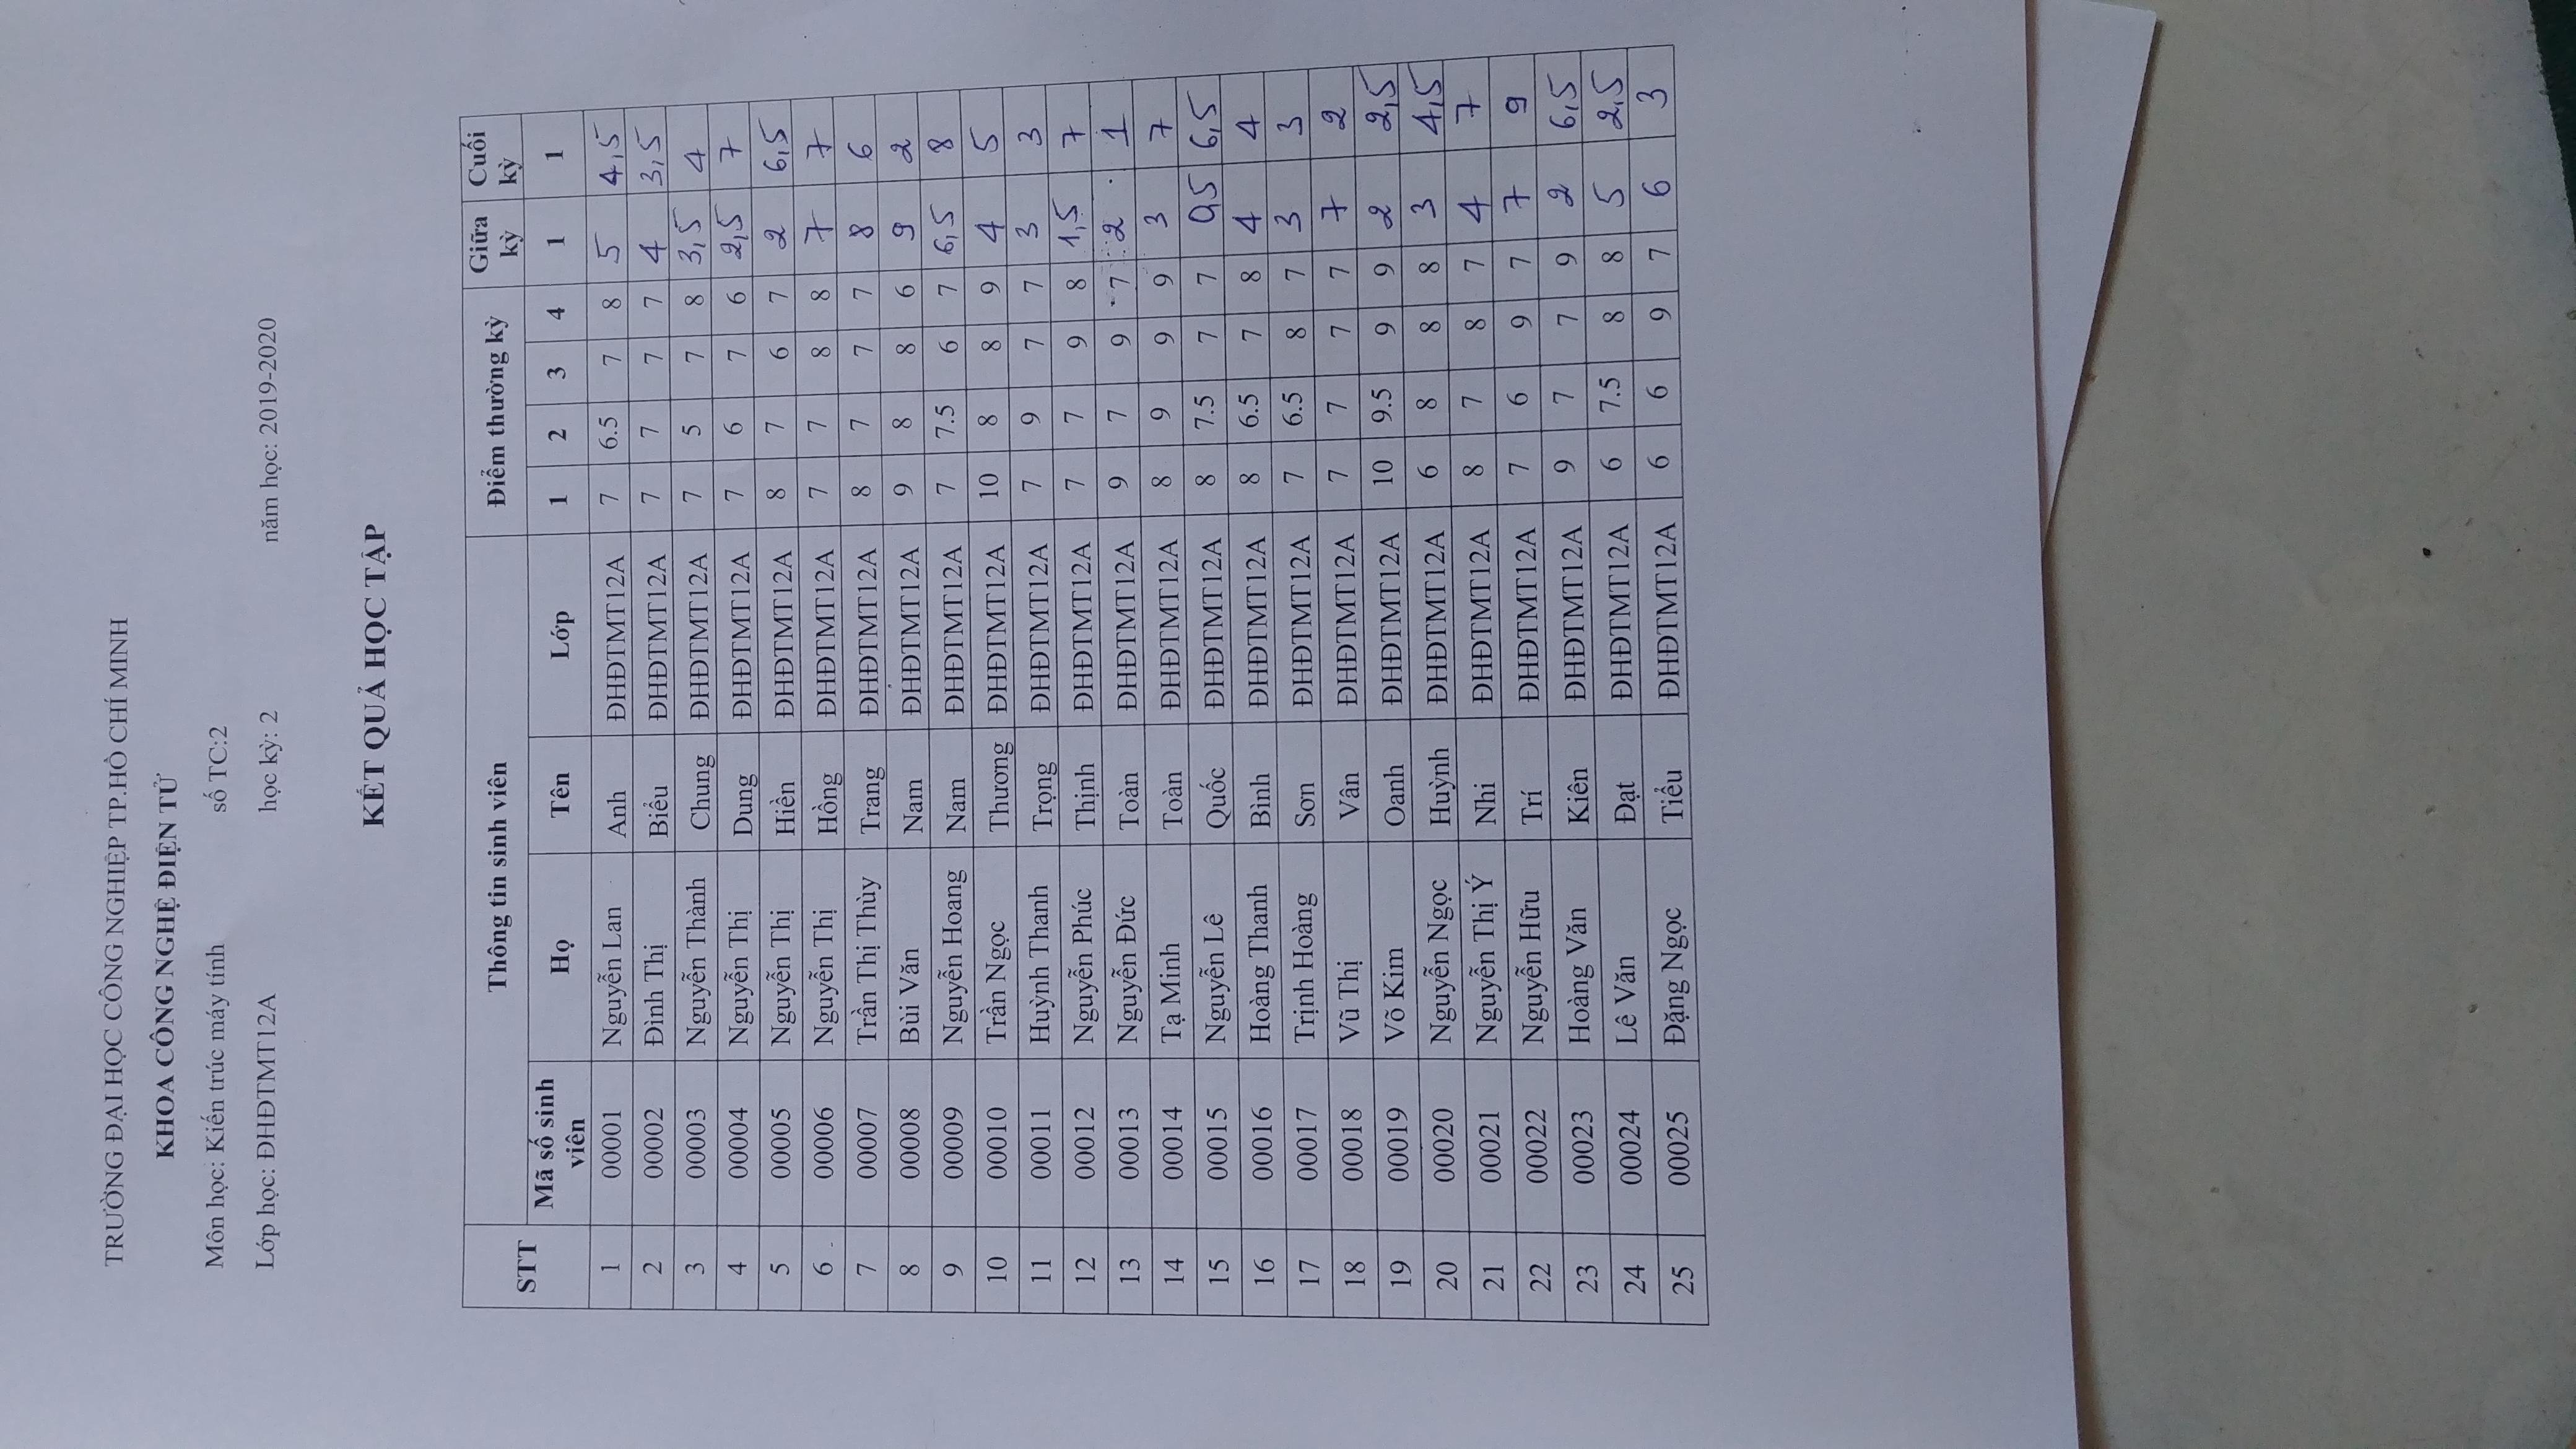 TRƯỜNG ĐẠI HỌC CÔNG NGHIỆP TP.HỒ CHÍ MINH
KHOA CÔNG NGHỆ ĐIỆN TỬ
Môn học: Kiến trúc máy tính số TC:2
Lớp học: ĐHĐTMT12A học kỳ: 2 năm học: 2019-2020
KẾT QUẢ HỌC TẬP
STT Thông tin sinh viên Điểm thường kỳ Giữa kỳ Cuối kỳ
Mã số sinh viên Họ Tên Lớp 1 2 3 4 1 1
1 00001 Nguyễn Lan Anh ĐHĐTMT12A 7 6.5 7 8 5 4,5
2 00002 Đình Thị Biểu ĐHĐTMT12A 7 7 7 7 4 3,5
3 00003 Nguyễn Thành Chung ĐHĐTMT12A 7 5 7 8 3,5 4
4 00004 Nguyễn Thị Dung ĐHĐTMT12A 7 6 7 6 2,5 7
5 00005 Nguyễn Thị Hiền ĐHĐTMT12A 8 7 6 7 2 6,5
6 00006 Nguyễn Thị Hồng ĐHĐTMT12A 7 7 8 8 7 7
7 00007 Trần Thị Thùy Trang ĐHĐTMT12A 8 7 7 7 8 6
8 00008 Bùi Văn Nam ĐHĐTMT12A 9 8 8 6 9 2
9 00009 Nguyễn Hoang Nam ĐHĐTMT12A 7 7.5 6 7 6,5 8
10 00010 Trần Ngọc Thương ĐHĐTMT12A 10 8 8 9 4 5
11 00011 Huỳnh Thanh Trọng ĐHĐTMT12A 7 9 7 7 3 3
12 00012 Nguyễn Phúc Thịnh ĐHĐTMT12A 7 7 9 8 1,5 7
13 00013 Nguyễn Đức Toàn ĐHĐTMT12A 9 7 9 7 2 1
14 00014 Tạ Minh Toàn ĐHĐTMT12A 8 9 9 9 3 7
15 00015 Nguyễn Lê Quốc ĐHĐTMT12A 8 7.5 7 7 0,5 6,5
16 00016 Hoàng Thanh Bình ĐHĐTMT12A 8 6.5 7 8 4 4
17 00017 Trịnh Hoàng Sơn ĐHĐTMT12A 7 6.5 8 7 3 3
18 00018 Vũ Thị Vân ĐHĐTMT12A 7 7 7 7 7 2
19 00019 Võ Kim Oanh ĐHĐTMT12A 10 9.5 9 9 2 2,5
20 00020 Nguyễn Ngọc Huỳnh ĐHĐTMT12A 6 8 8 8 3 4,5
21 00021 Nguyễn Thị Ý Nhi ĐHĐTMT12A 8 7 8 7 4 7
22 00022 Nguyễn Hữu Trí ĐHĐTMT12A 7 6 9 7 7 9
23 00023 Hoàng Văn Kiên ĐHĐTMT12A 9 7 7 9 2 6,5
24 00024 Lê Văn Đạt ĐHĐTMT12A 6 7.5 8 8 5 2,5
25 00025 Đặng Ngọc Tiểu ĐHĐTMT12A 6 6 9 7 6 3